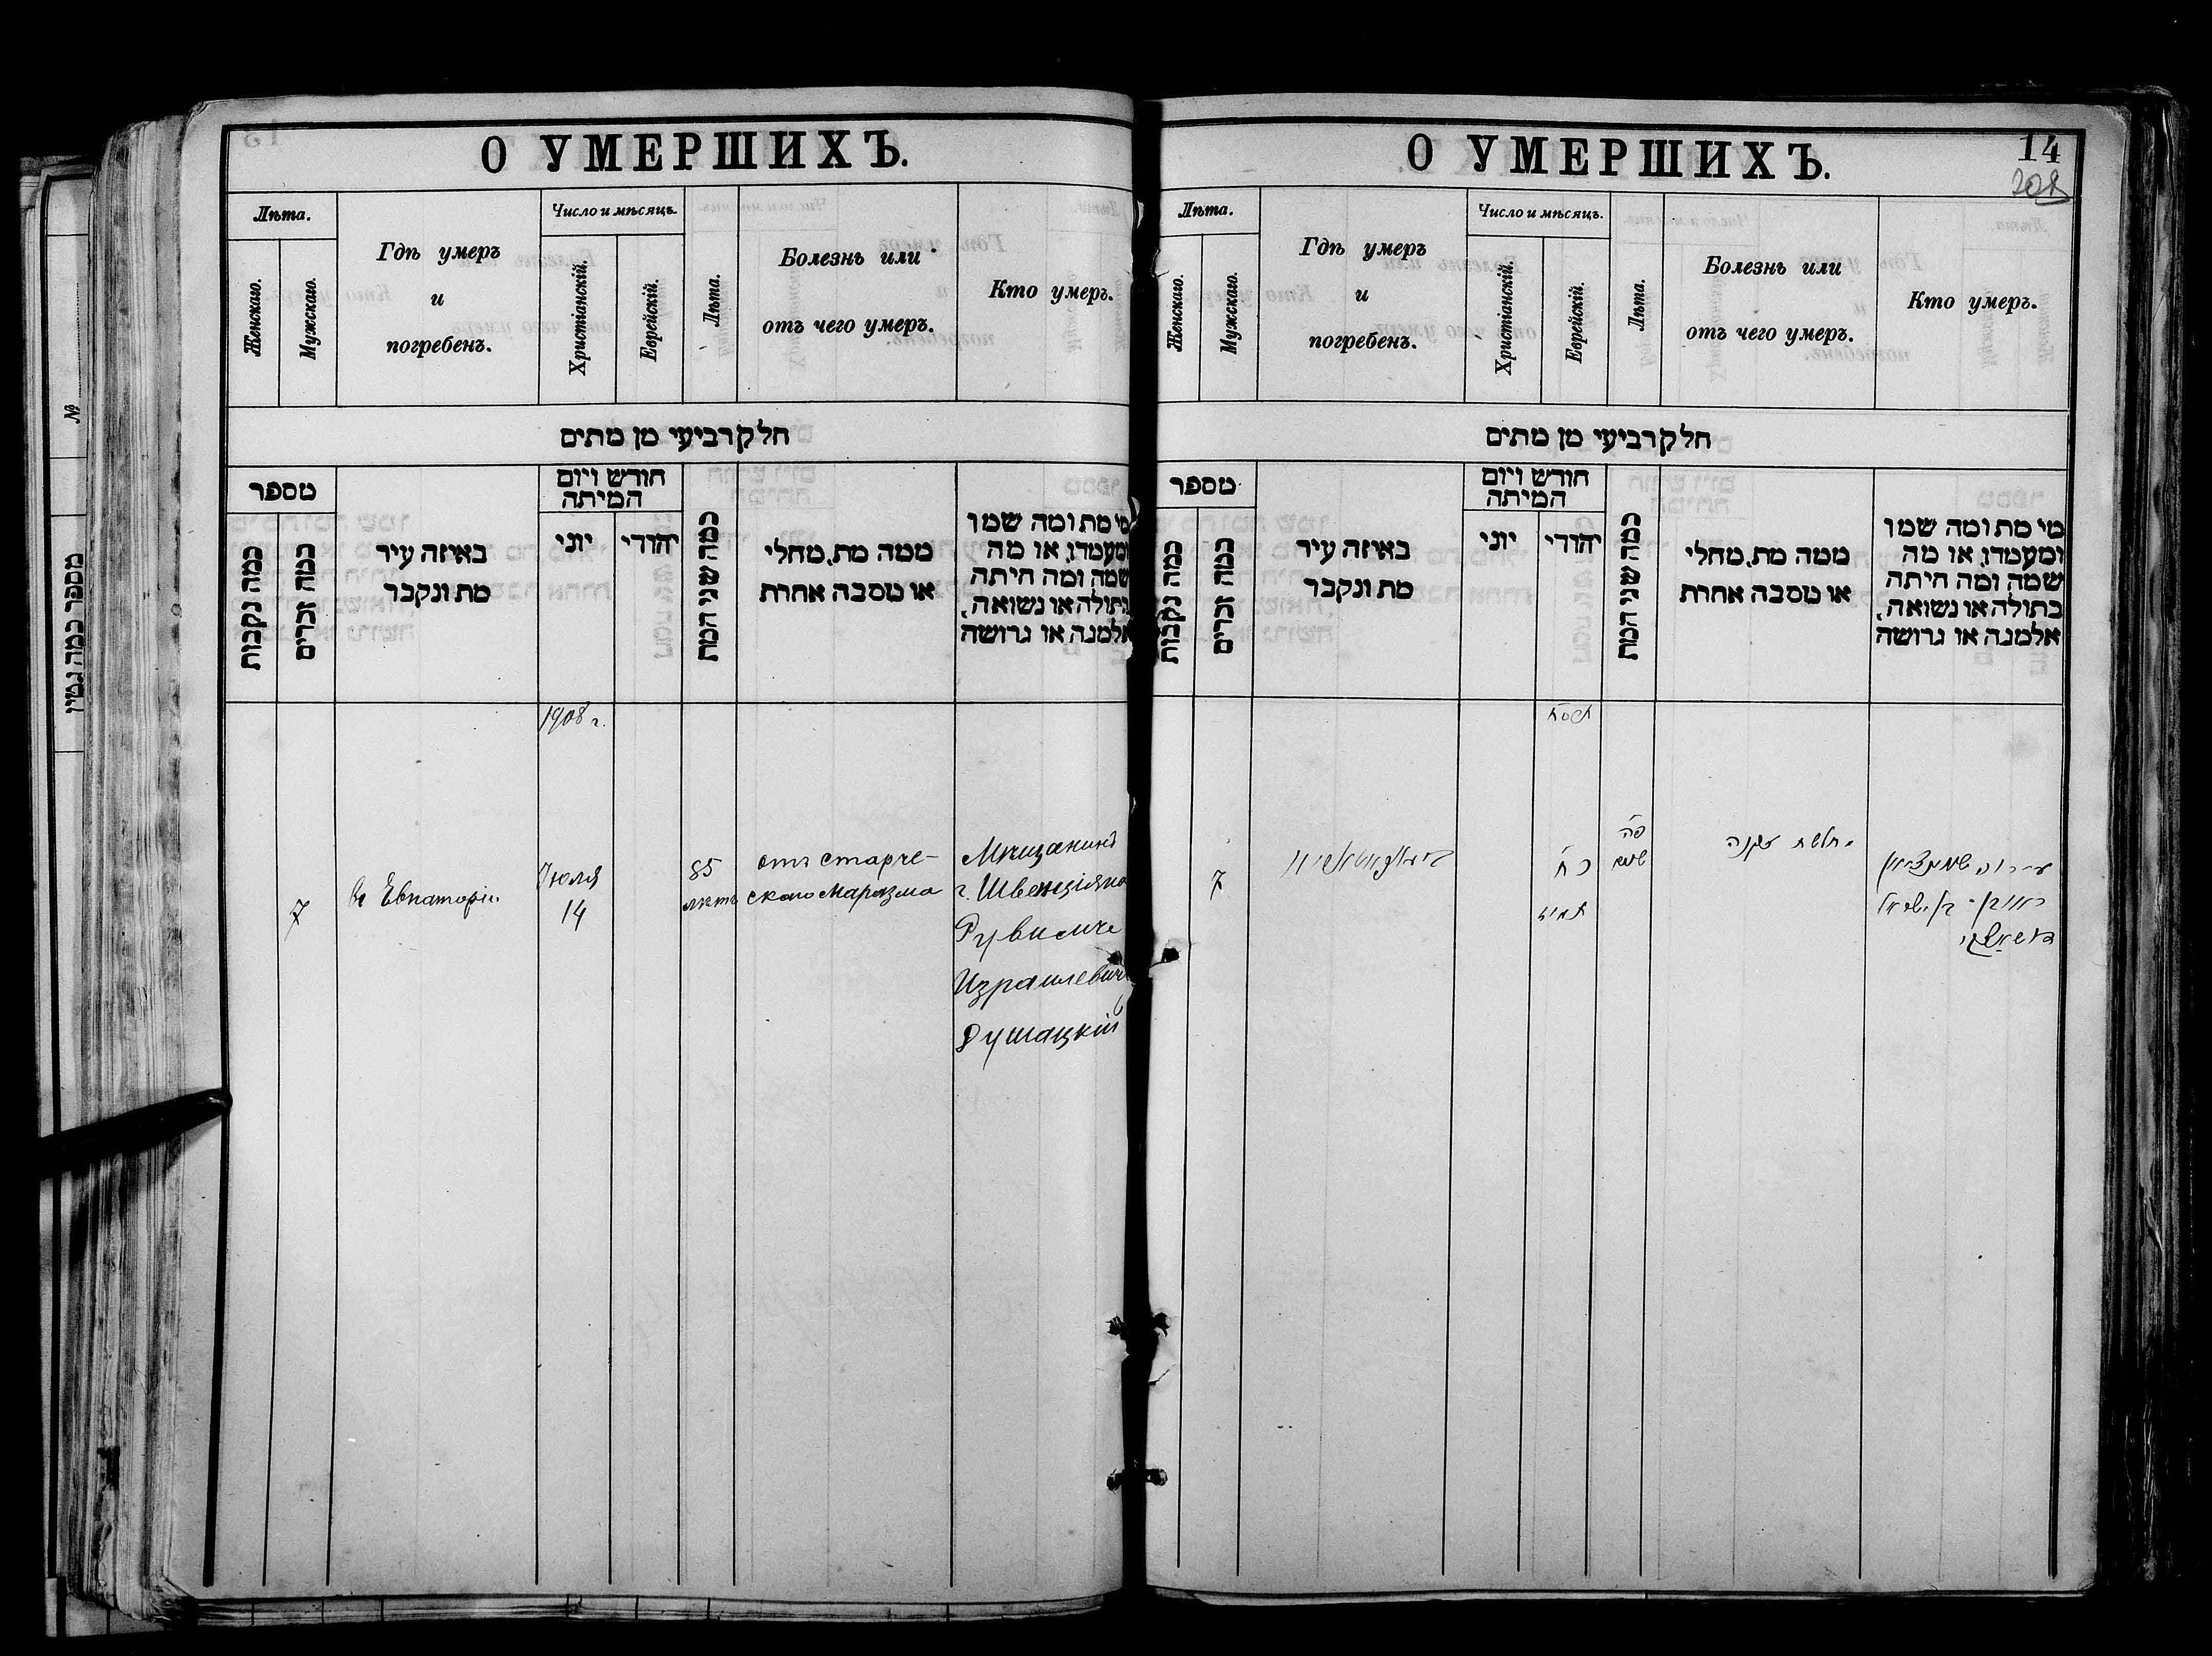 О УМЕРШИХЪ.
Лѣта.
Женскаго.
Мужскаго.
Гдѣ умеръ
и
погребенъ.
Число и мѣсяцъ.
Христіанскій.
Еврейскій.
Лѣта.
Болезнь или
отъ чего умеръ.
Кто умеръ.
חלק רביעי מן מתים
מספר
כמה נקבות
כמה זכרים
באיזה עיר
מת ונקבר
חודש ויום
המיתה
יוני
יהודי
כמה שני המת
ממה מת, מחלי
או מסבה אחרת
מי מת ומה שמו
ומעמדו, או מה
שמה ומה היתה
בתולה או נשואה,
אלמנה או גרושה
1908 г.
7
Въ Евпаторіи
Іюля
14
85
лѣтъ
отъ старче-
скаго маразма
Мѣщанинъ
г. Швенціяна
Рувимъ
Израилевичъ
Душацкій
№
מספר כמה נמין
О УМЕРШИХЪ.
14
Лѣта.
Женскаго.
Мужскаго.
Гдѣ умеръ
и
погребенъ.
Число и мѣсяцъ.
Христіанскій.
Еврейскій.
Лѣта.
Болезнь или
отъ чего умеръ.
Кто умеръ.
חלק רביעי מן מתים
מספר
כמה נקבות
כמה זכרים
באיזה עיר
מת ונקבר
חודש ויום
המיתה
יוני
יהודי
כמה שני המת
ממה מת, מחלי
או מסבה אחרת
מי מת ומה שמו
ומעמדו, או מה
שמה ומה היתה
בתולה או נשואה,
אלמנה או גרושה
תרסח
7
כח
תמוז
פה
שנים
חלשת זקנה
ראובן בן ישראל
דושאצקי